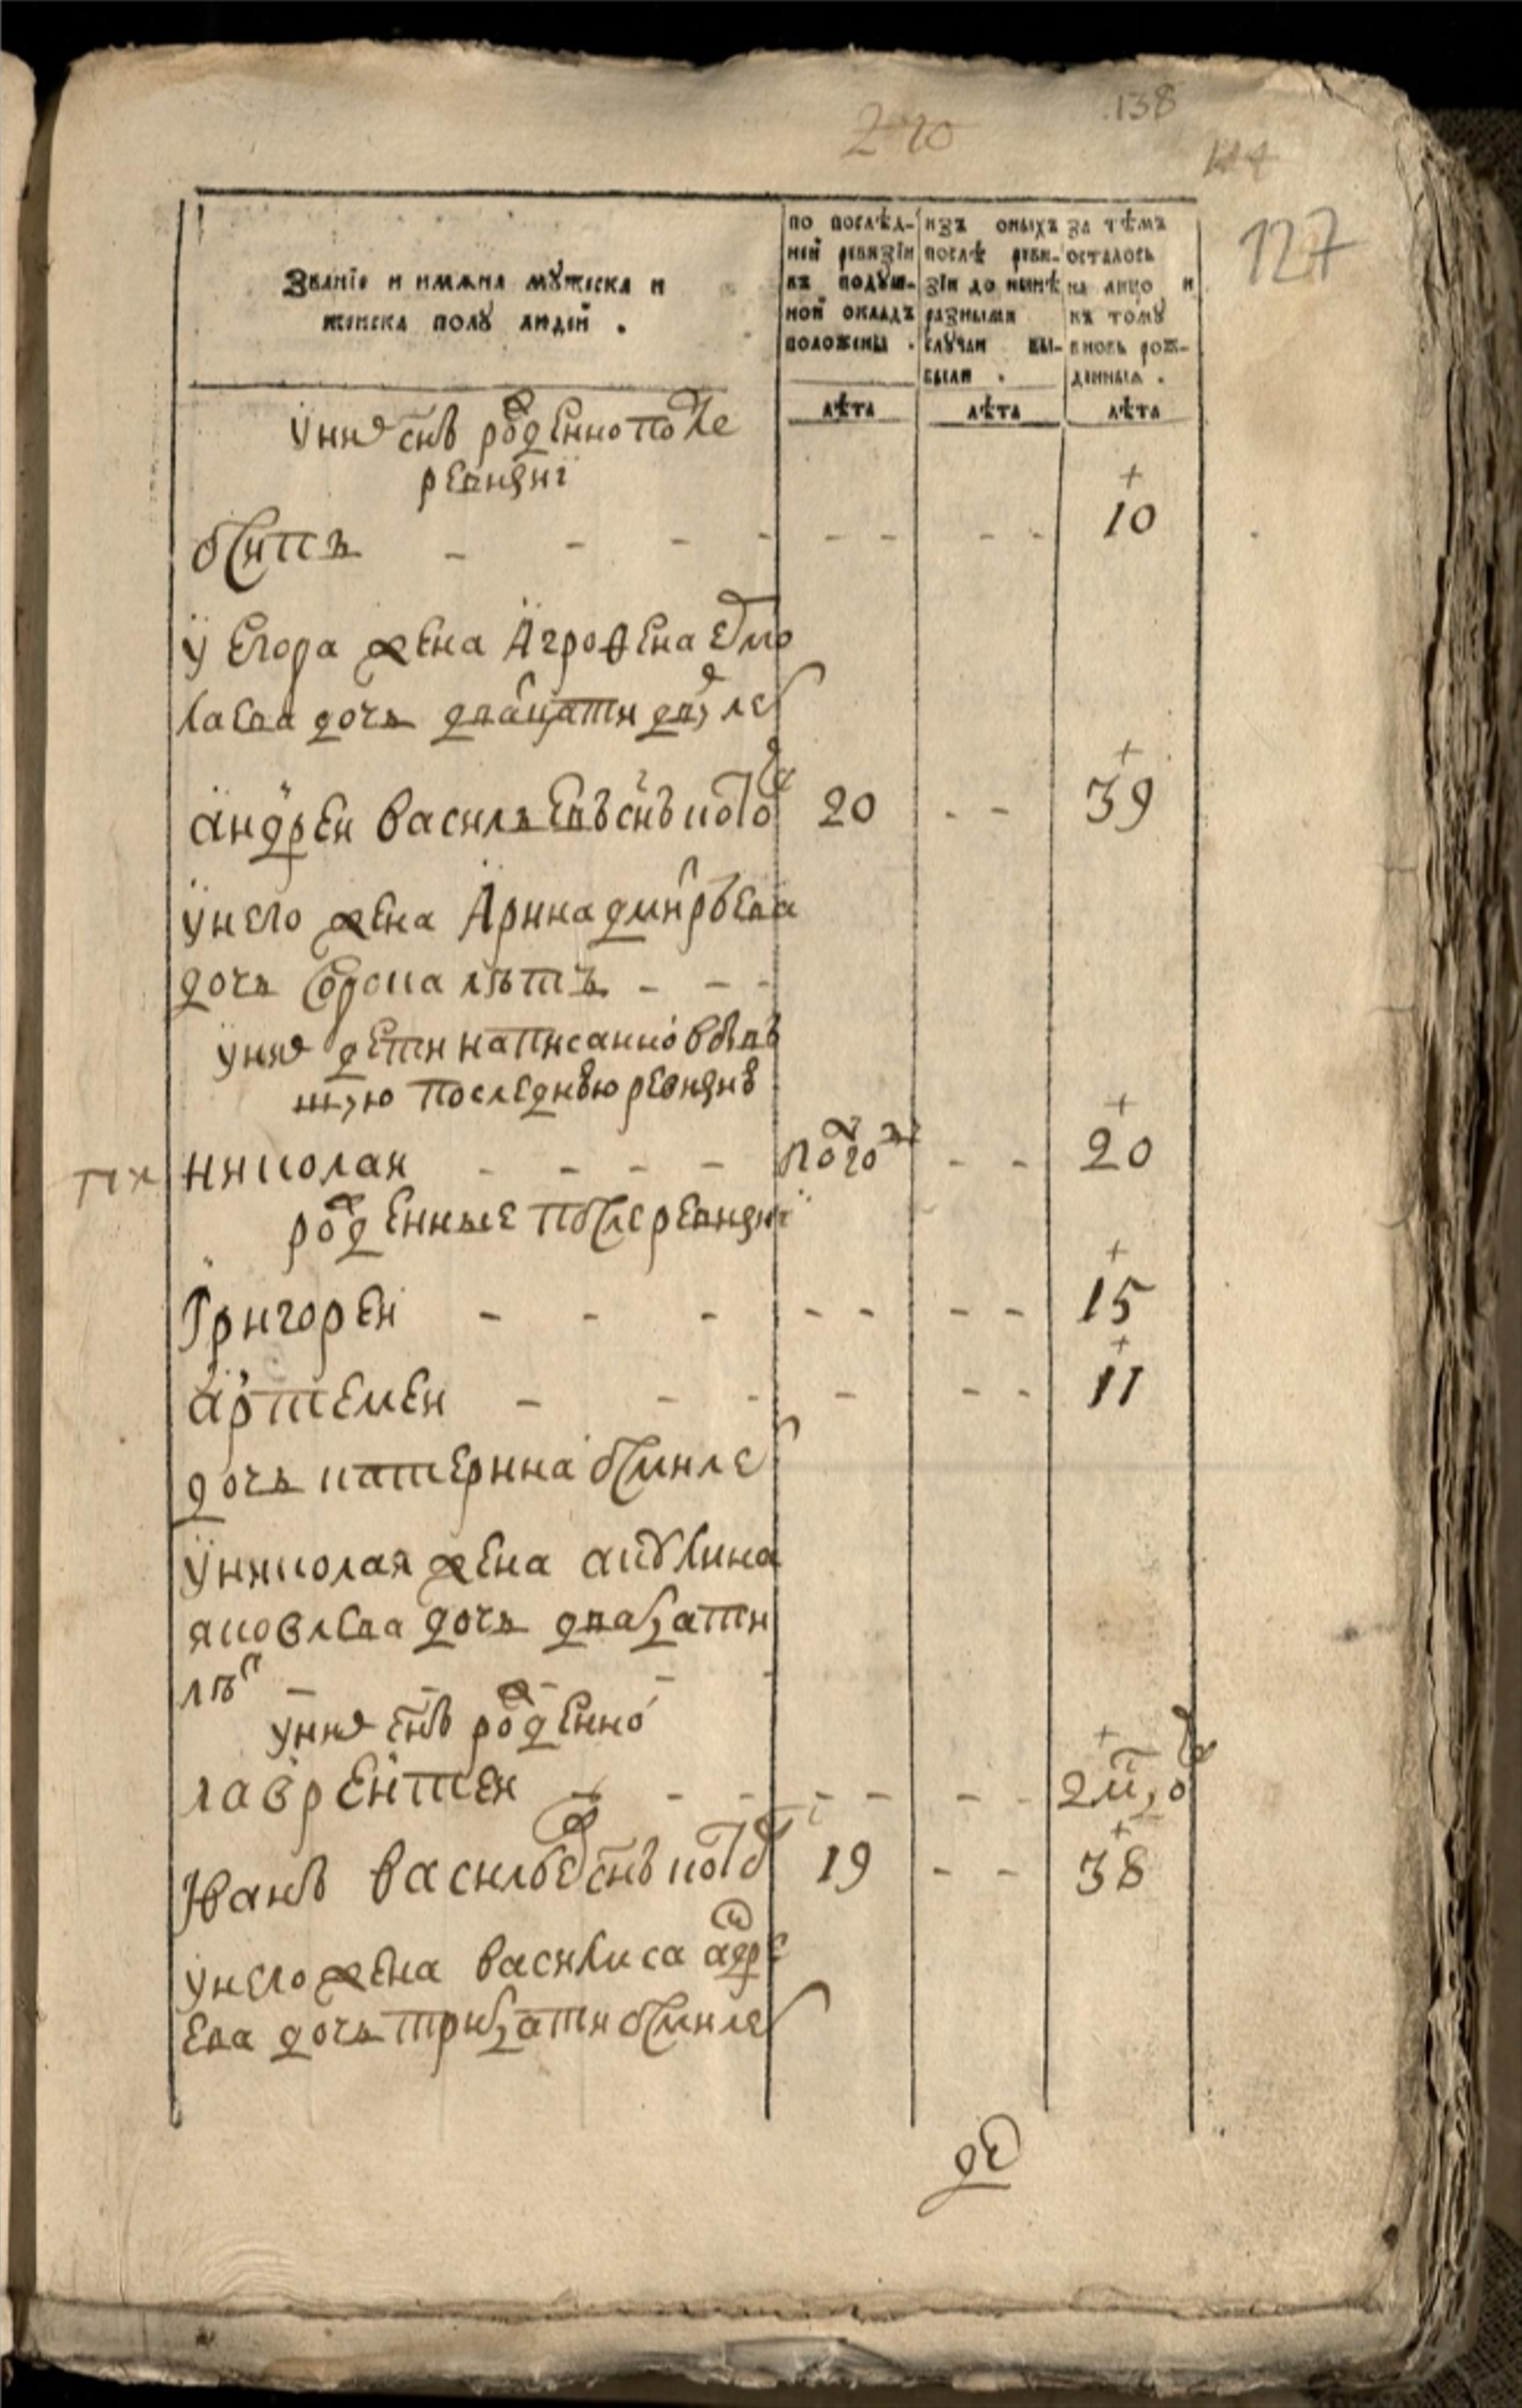 270
138
144
127
Званїе и имѧна мꙋжеска и
женска полꙋ людей .
по послѣд-
ней ревизїи
въ подꙋш-
ной окладъ
положены .
изъ оныхъ
послѣ реви-
зїи до нынѣ
разными
слꙋчаи вы-
были .
за тѣмъ
осталось
на лицо и
къ томꙋ
вновь рож-
денныѧ .
лѣта
лѣта
лѣта
у них снъ рожденно после
ревизиї
осипъ - - - - - - - - 10
у егора жена агрофена
лаева дочь двацати дву летъ
андреи васильевъ снъ 20 - - 39
у него жена арина дмитрѣева
дочь сорока лѣтъ - - -
у них дети написанно в быв
шую последнюю ревизию
николаи - - - - полго - - 20
рожденные после ревизиї
григореи - - - - - - - 15
артемеи - - - - - - 11
дочь катерина осми летъ
у николая жена акулина
яковлева дочь двацати
лѣтъ - - - - -
у них снъ рожденно
лаврентеи - - - - - - - 2
иванъ василев снъ 19 - - 38
у него жена василиса андре
ева дочь трицати осми летъ
де